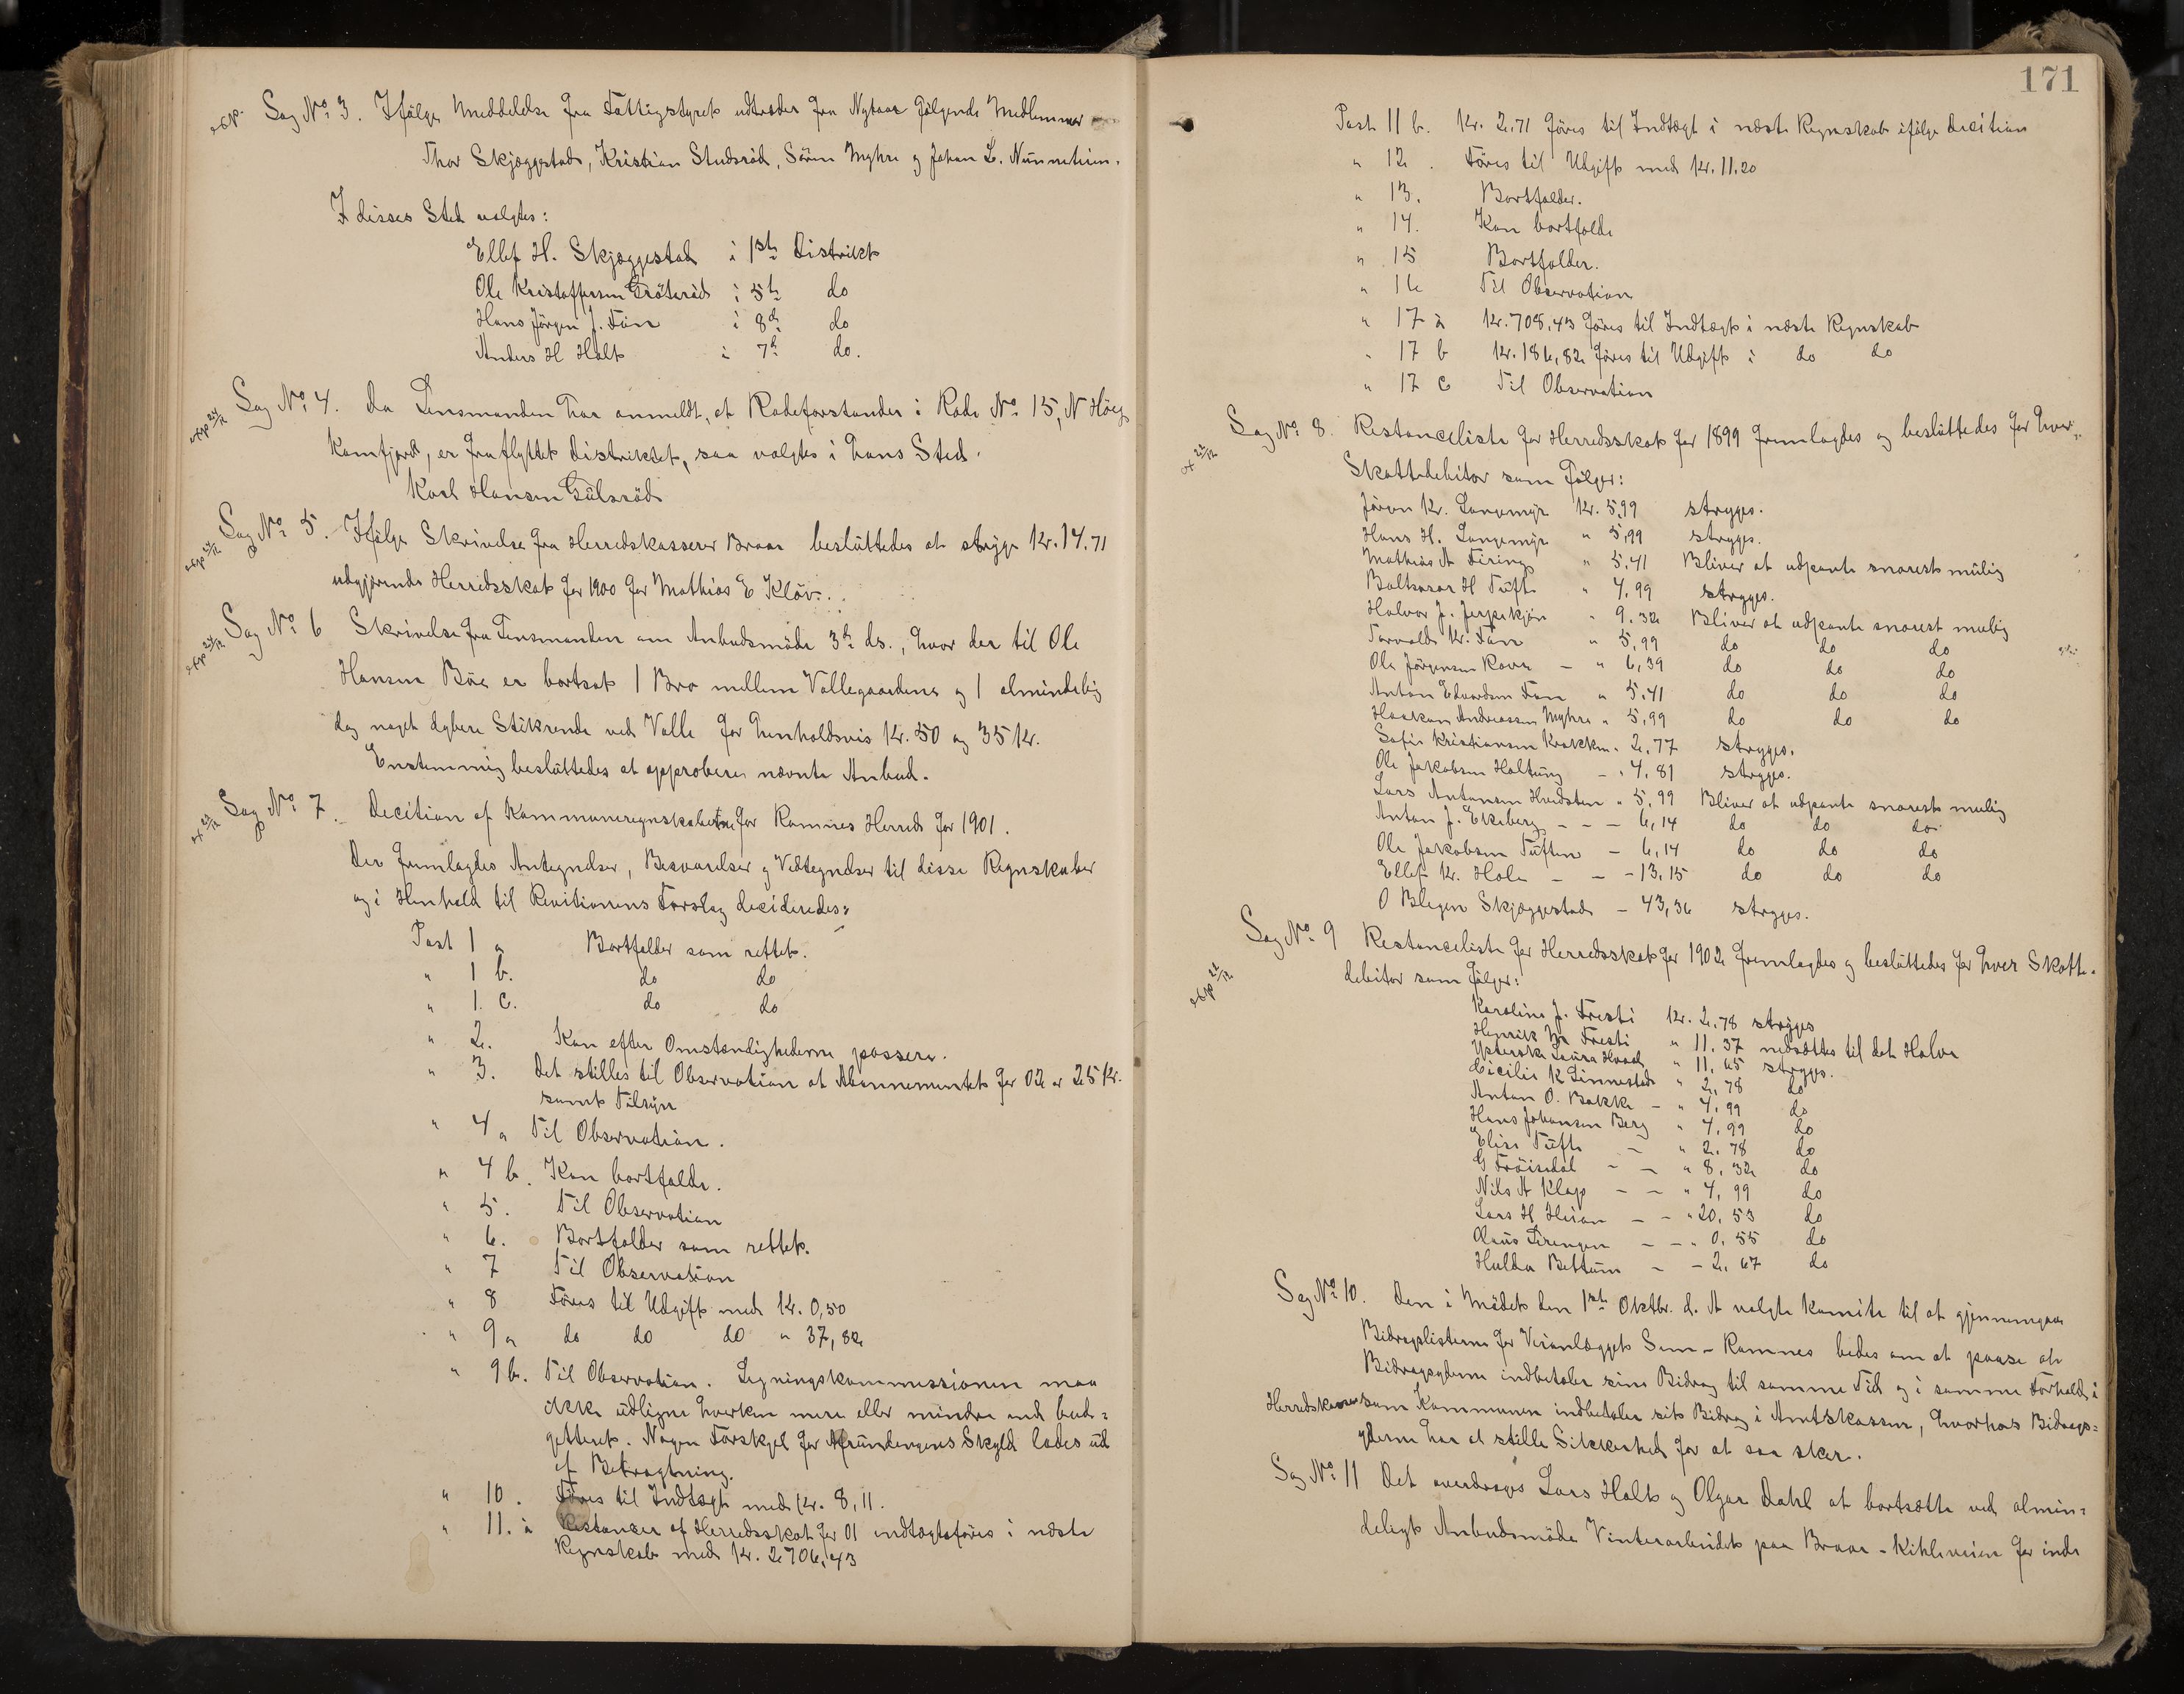 exp. Sag No. 3. Ifölge Meddelelse fra Fattigstyret udtræder fra Nytaar fölgende Medlemmer
Thor Skjæggestad, Kristian Studsröd, Sören Myhre og Johan L.
I disses Sted valgtes:
Ellef H. Skjæggestad i 1ste Distrikt
Ole Kristoffersen Gröteröd i 5te do
Hans Jörgen J. Fön i 8de do
Anders H Holt i 7de do.
exp 24/12 Sag No. 4. Da Lensmanden har anmeldt, at Rodeforstander i Rode No. 15, N Höeg
Kamfjord, er fraflyttet Distriktet, saa valgtes i hans Sted.
Karl Hansen Gulsröd
exp 24/12 Sag No. 5. Ifölge Skrivelse fra Herredskasserer Braar besluttedes at stryge Kr. 14.71
udgjörende Herredsskat for 1900 for Mathias E Klöv.
exp 24/12 Sag No. 6 Skrivelse fra Lensmanden om Anbudsmöde 3de ds., hvor der til Ole
Hansen Böe er bortsat 1 Bro mellem Vallegaardene og 1 almindelig
dog noget dybere Stikrende ved Valle for henholdsvis Kr. 50 og 35 Kr.
Enstemmig besluttedes at approbere nævnte Anbud.
ex 24/12 Sag No. 7. Decition af Kommuneregnskaberne for Ramnes Herred for 1901.
Der fremlagdes Antegnelser, Besvarelser og Vedtegnelser til disse Regnskaber
og i Henhold til Revitionens Forslag decideredes:
Post 1 a Bortfalder som rettet.
" 1 b. do do
" 1. c. do do
" 2. Kan efter Omstændighederne passere.
" 3. Det stilles til Observation at Abonnementet for 02 er 25 Kr.
samt Tilsyn
" 4 a Til Observation.
" 4 b. Kan bortfalde.
" 5. Til Observation
" 6. Bortfalder som rettet.
" 7 Til Observation
" 8 Föres til Udgift med Kr. 0,50
" 9 a do do do " 37,82
" 9 b. Til Observation. Ligningskommissionen maa
ikke udligne hverken mere eller mindre end bud=
getteret. Nogen Forskjel for Afrundingens Skyld lades ud
af Betragtning.
" 10. Föres til Indtægt med Kr. 8,11.
" 11. a Restancer af Herredsskat for 01 indtægtsföres i næste
Regnskab med Kr. 2706,43
171
Post 11 b. Kr. 2.71 föres til Indtægt i næste Regnskab ifölge Decition
" 12. Föres til Udgift med Kr. 11.20
" 13. Bortfalder.
" 14. Kan bortfalde
" 15 Bortfalder.
" 16 Til Observation
" 17 a Kr. 708,43 föres til Indtægt i næste Regnskab
" 17 b Kr. 186,82 föres til Udgift i do do
" 17 c Til Observation
ex 22/12 Sag No. 8. Restanceliste for Herredsskat for 1899 fremlagdes og besluttedes for hver
Skattedebitor som fölger:
Jörgen Kr. Langemyr Kr. 5,99 stryges.
Hans H. Langemyr " 5,99 stryges.
Mathias A Firing " 5,41 Bliver at udpante snarest mulig
Baltzasar H Tuft " 4,99 stryges.
Halvor J. Jerpekjön " 9.32 Bliver at udpante snarest mulig
Torvald Kr. Fön " 5,99 do do do
Ole Jörgensen Rove — " 6,39 do do do
Anton Edvardsen Fön " 5,41 do do do
Haakon Andreassen Myhre " 5,99 do do do
Sofie Kristiansen Krakken " 2,77 stryges.
Ole Jakobsen Holtung — " 4,81 stryges.
Lars Antonsen Hvidsten " 5,99 Bliver at udpante snarest mulig
Anton J. Ekeberg — — — 6,14 do do do
Ole Jakobsen Tuften — 6,14 do do do
Ellef Kr. Hole — — — 13,15 do do do
O Blegen Skjæggestad — 43,36 stryges.
exp 22/12 Sag No. 9 Restanceliste for Herredsskat for 1902 fremlagdes og besluttedes for hver Skatte=
debitor som fölger:
Karoline J. Fresti Kr. 2.78 stryges
Henrik Fresti " 11.37 nedsættes til det Halve
Laura " 11.65 stryges.
Cicilie K Linnestad " 2,78 do
Anton O. Bakke — " 4,99 do
Hans Johansen Berg " 4,99 do
Elise Tuft — " 2.78 do
G Fröisdal — — " 8,32 do
Nils A Klop — — " 4,99 do
Lars H Heian — — " 20,53 do
Olaus — — " 0,55 do
Hulda Bettum — — 2,67 do
Sag No. 10. Den i Mödet den 1ste Oktbr. d. A valgte Komite til at gjennemgaa
Bidragslisterne for Veianlægget Sem — Ramnes bedes om at paase at
Bidragsyderne indbetaler sine Bidrag til samme Tid og i samme Forhold i
Herredskassen som Kommunen indbetaler sit Bidrag i Amtskassen, hvorhos Bidrags=
yderne har at stille Sikkerhed for at saa sker.
Sag No. 11 Det overdrages Lars Holt og Olgar Dahl at bortsætte ved almin=
deligt Anbudsmöde Vinterarbeidet paa Braar — Kihleveien for inde